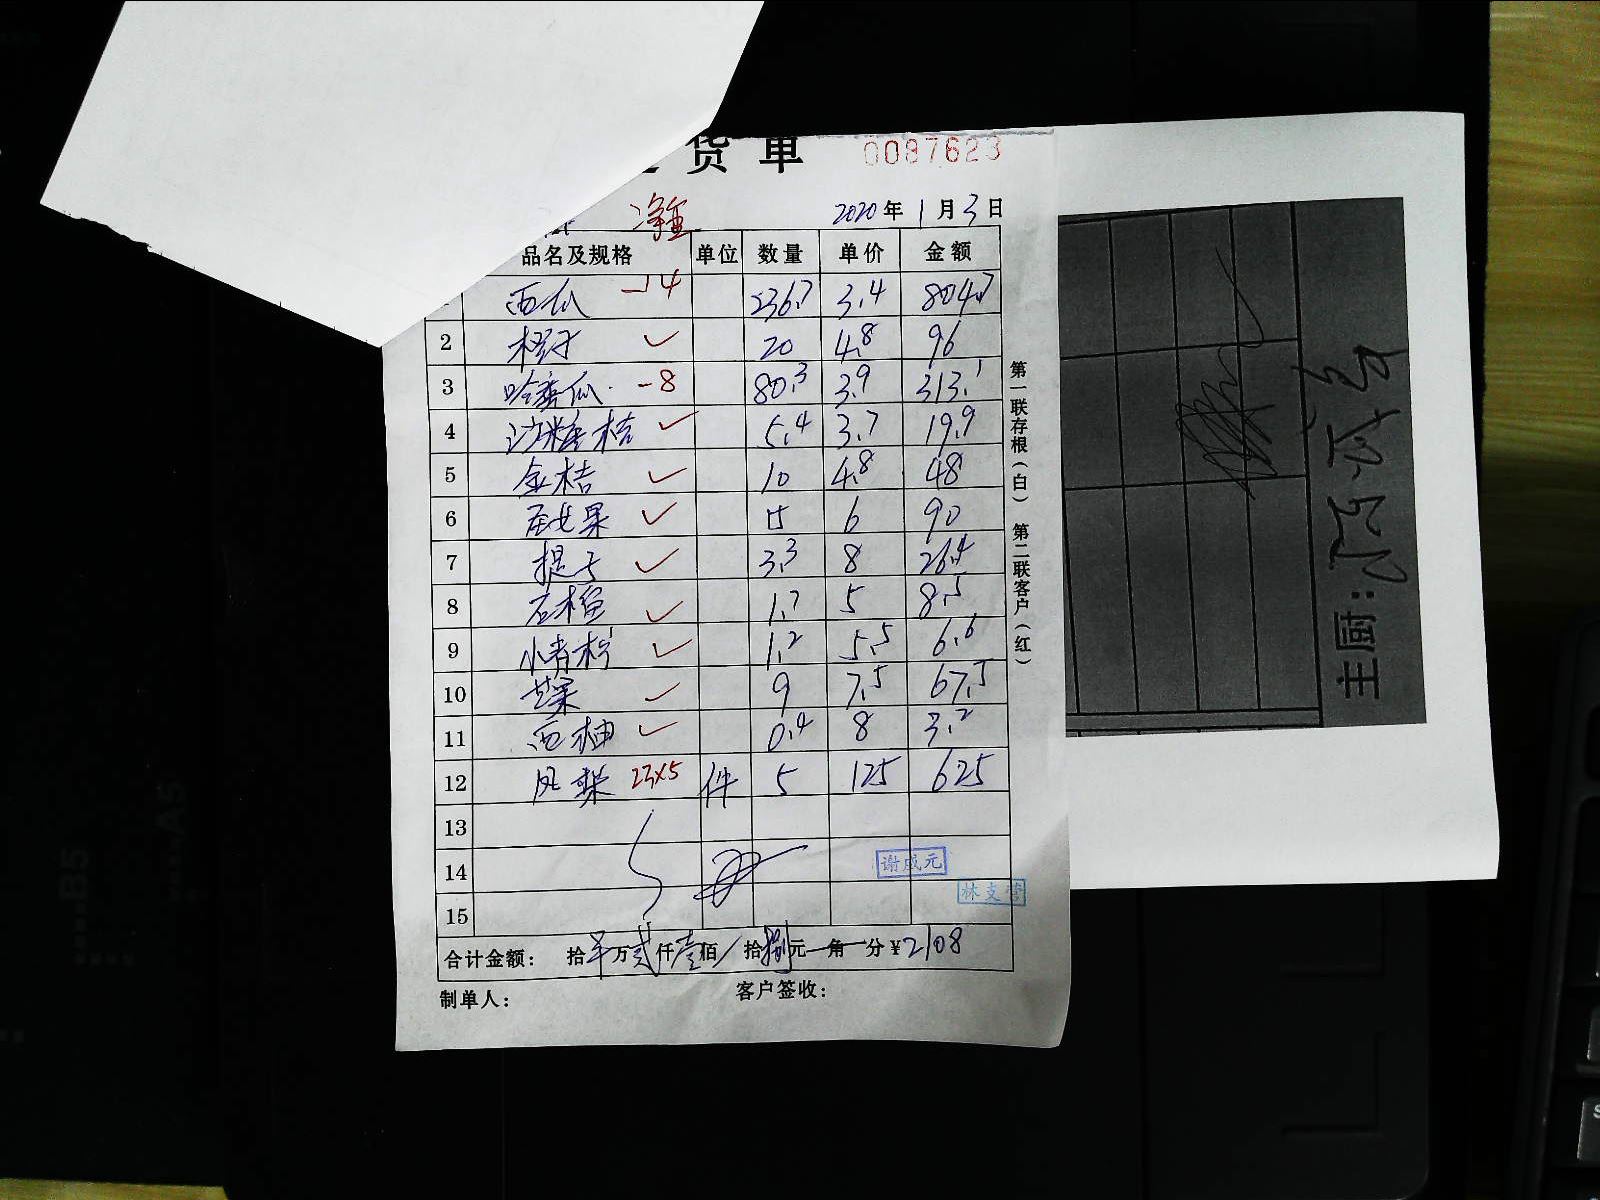 货单 0087623
净重 2020年1月3日
品名及规格 单位 数量 单价 金额
西瓜 -14 236.7 3.4 804.7
2 橙子 ✓ 20 4.8 96
3 哈蜜瓜 -8 80.3 3.9 313.1
4 沙糖桔 ✓ 5.4 3.7 19.9
5 金桔 ✓ 10 4.8 48
6 圣女果 ✓ 15 6 90
7 提子 ✓ 3.3 8 26.4
8 石榴 ✓ 1.7 5 8.5
9 小青柠 ✓ 1.2 5.5 6.6
10 芒果 ✓ 9 7.5 67.5
11 西柚 ✓ 0.4 8 3.2
12 凤梨 23×5 件 5 125 625
13
14 谢成元
15 林支
合计金额: 拾 万贰仟壹佰/拾捌元 角 分¥2108
制单人: 客户签收:
第一联存根(白) 第二联客户(红)
主厨:
B5
A5